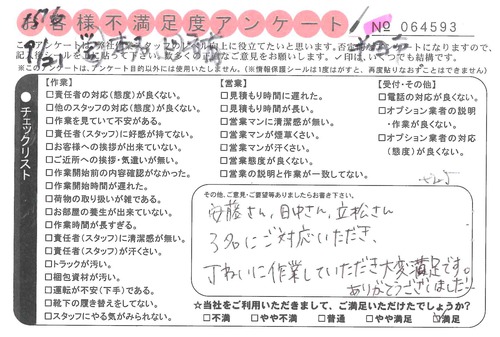 お客様不満足度アンケート
№ 064593
このアンケートは、弊社
に役立てたいと思います。否定
なアンケートになりますので、
数多くの
なご意見をお願いします。レ印は、いくつでも結構です。
※このアンケートは、アンケート目的以外には使用いたしません。(※情報保護シールは1度はがすと、再度貼りなおすことはできません)
チェックリスト
【作業】
□責任者の対応(態度)が良くない。
□他のスタッフの対応(態度)が良くない。
□作業を見ていて不安がある。
□責任者(スタッフ)に好感が持てない。
□お客様への挨拶が出来ていない。
□ご近所への挨拶・気遣いが無い。
□作業開始前の内容確認がなかった。
□作業開始時間が遅れた。
□荷物の取り扱いが雑である。
□お部屋の養生が出来ていない。
□作業時間が長すぎる。
□責任者(スタッフ)に清潔感が無い。
□責任者(スタッフ)が汗くさい。
□トラックが汚い。
□梱包資材が汚い。
□運転が不安(下手)である。
□靴下の履き替えをしてない。
□スタッフにやる気がみられない。
【営業】
□見積もり時間に遅れた。
□見積もり時間が長い。
□営業マンに清潔感が無い。
□営業マンが煙草くさい。
□営業マンが汗くさい。
□営業態度が良くない。
□営業の説明と作業が一致してない。
【受付・その他】
□電話の対応が良くない。
□オプション業者の説明・作業が良くない。
□オプション業者の対応(態度)が良くない。
その他、ご意見・ご要望等ありましたらお書き下さい。
安藤さん、田中さん、立松さん
3名にご対応いただき、
丁ねいに作業していただき大変満足です。
ありがとうございました!
☆当社をご利用いただきまして、ご満足いただけたでしょうか?
□不満 □やや不満 □普通 □やや満足 ☑満足